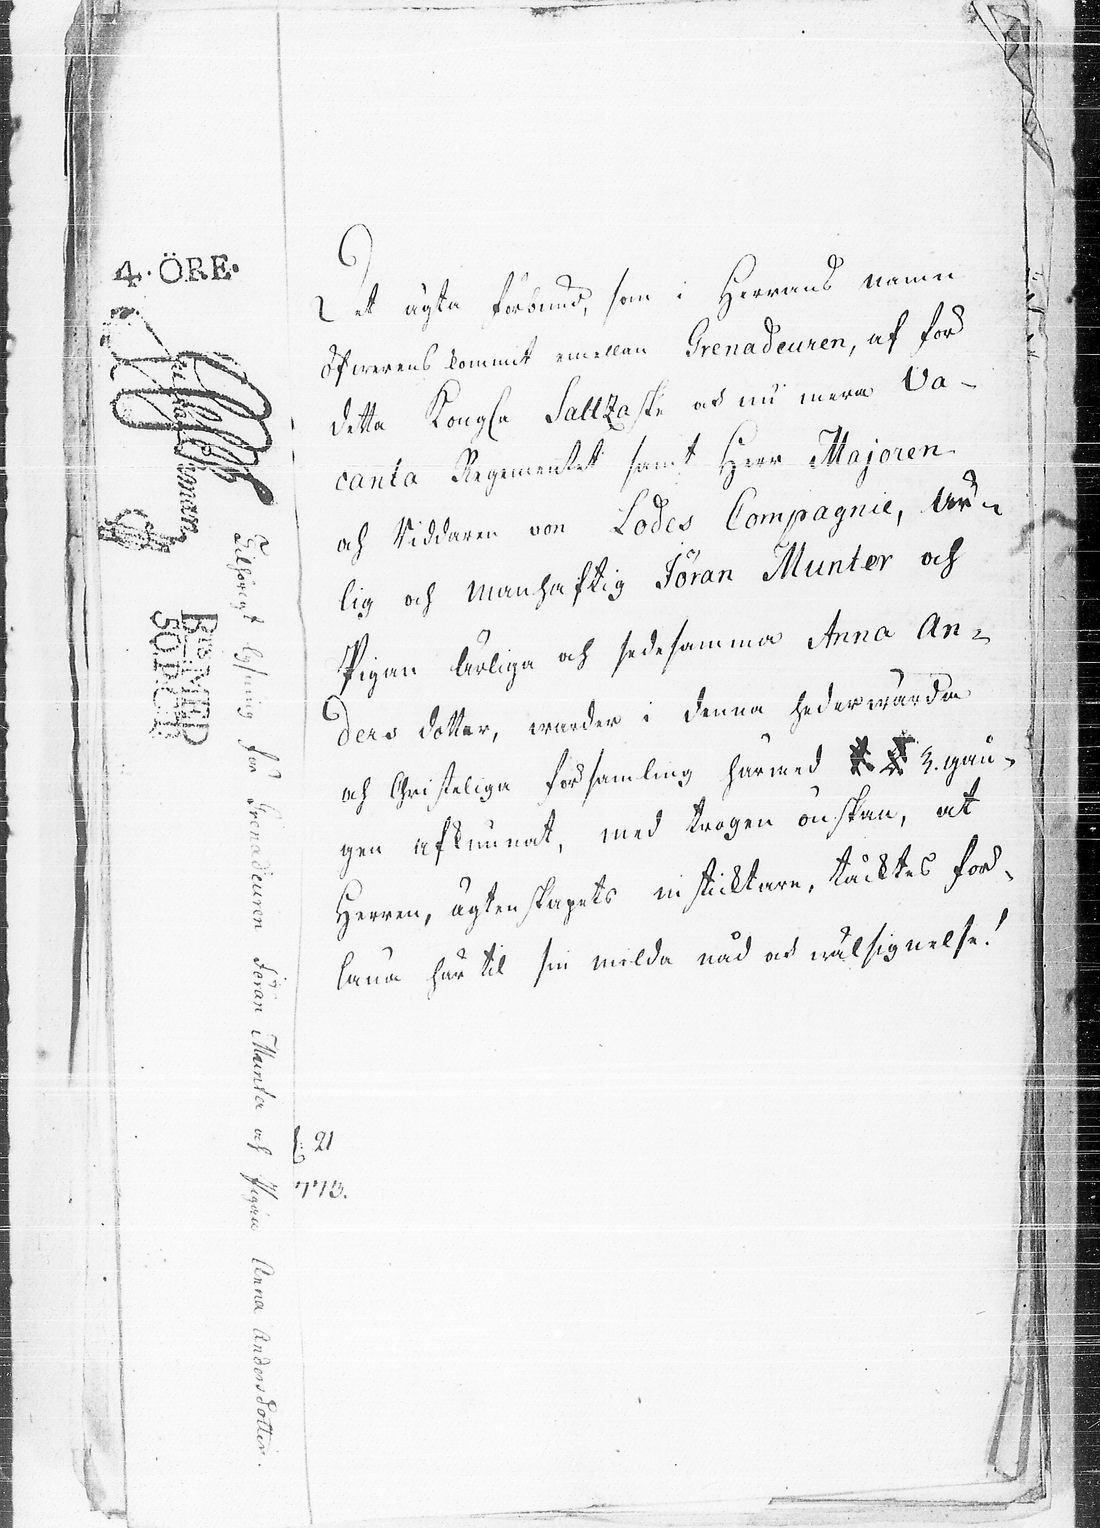 4. ÖRE.
Det ägta förbund, som i Herrans namn
öfwerens kommit emellan Grenadeuren, af för
detta Kongl. Saltzaske och nu mera Va-
canta Regementet samt Herr Majoren
och Riddaren von Lodes Compagnie, Är-
lig och Manhaftig Jöran Munter och
Pigan Ärliga och sedesamma Anna An-
ders dotter, warder i denna hederwärda
och Christeliga församling härmed 3. gån-
gen afkunnat, med trogen önskan, at
Herren, ägtenskapets insticktare, täcktes för-
läna här til sin milda nåd och wälsignelse!
L: 21
773.
lysning för Grenadeuren Jöran Munter och Pigan Anna Andersdotter.